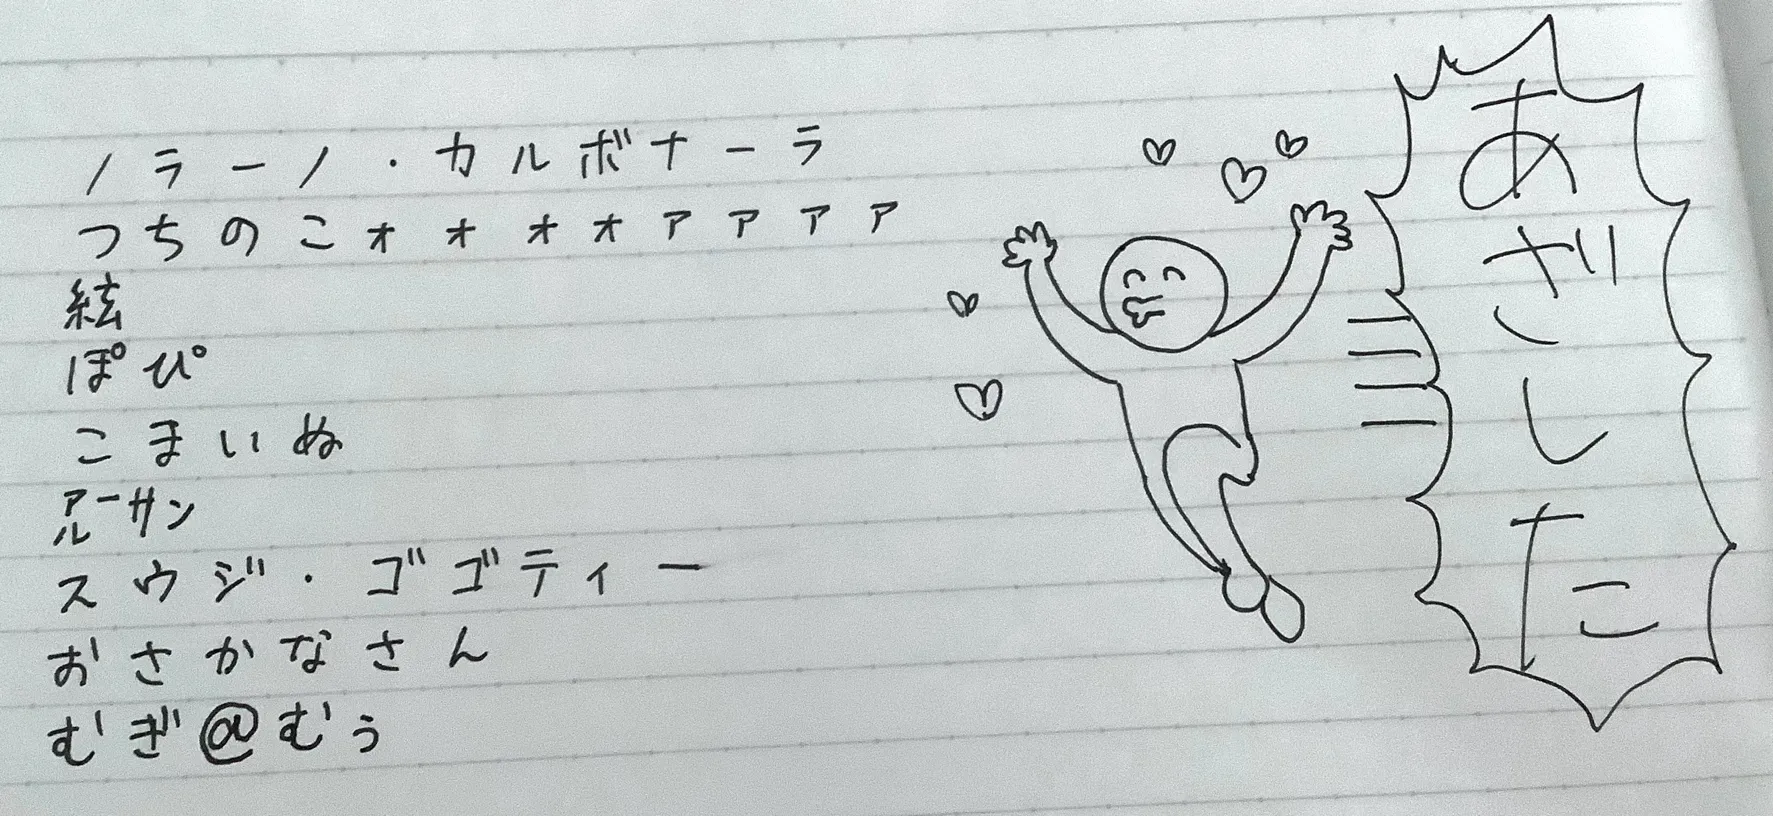 ノラーノ・カルボナーラ
つちのこォォォォァァァァ
絃
ぽぴ
こまいぬ
アルーサン
スウジ・ゴゴティー
おさかなさん
むぎ@むぅ
あざした